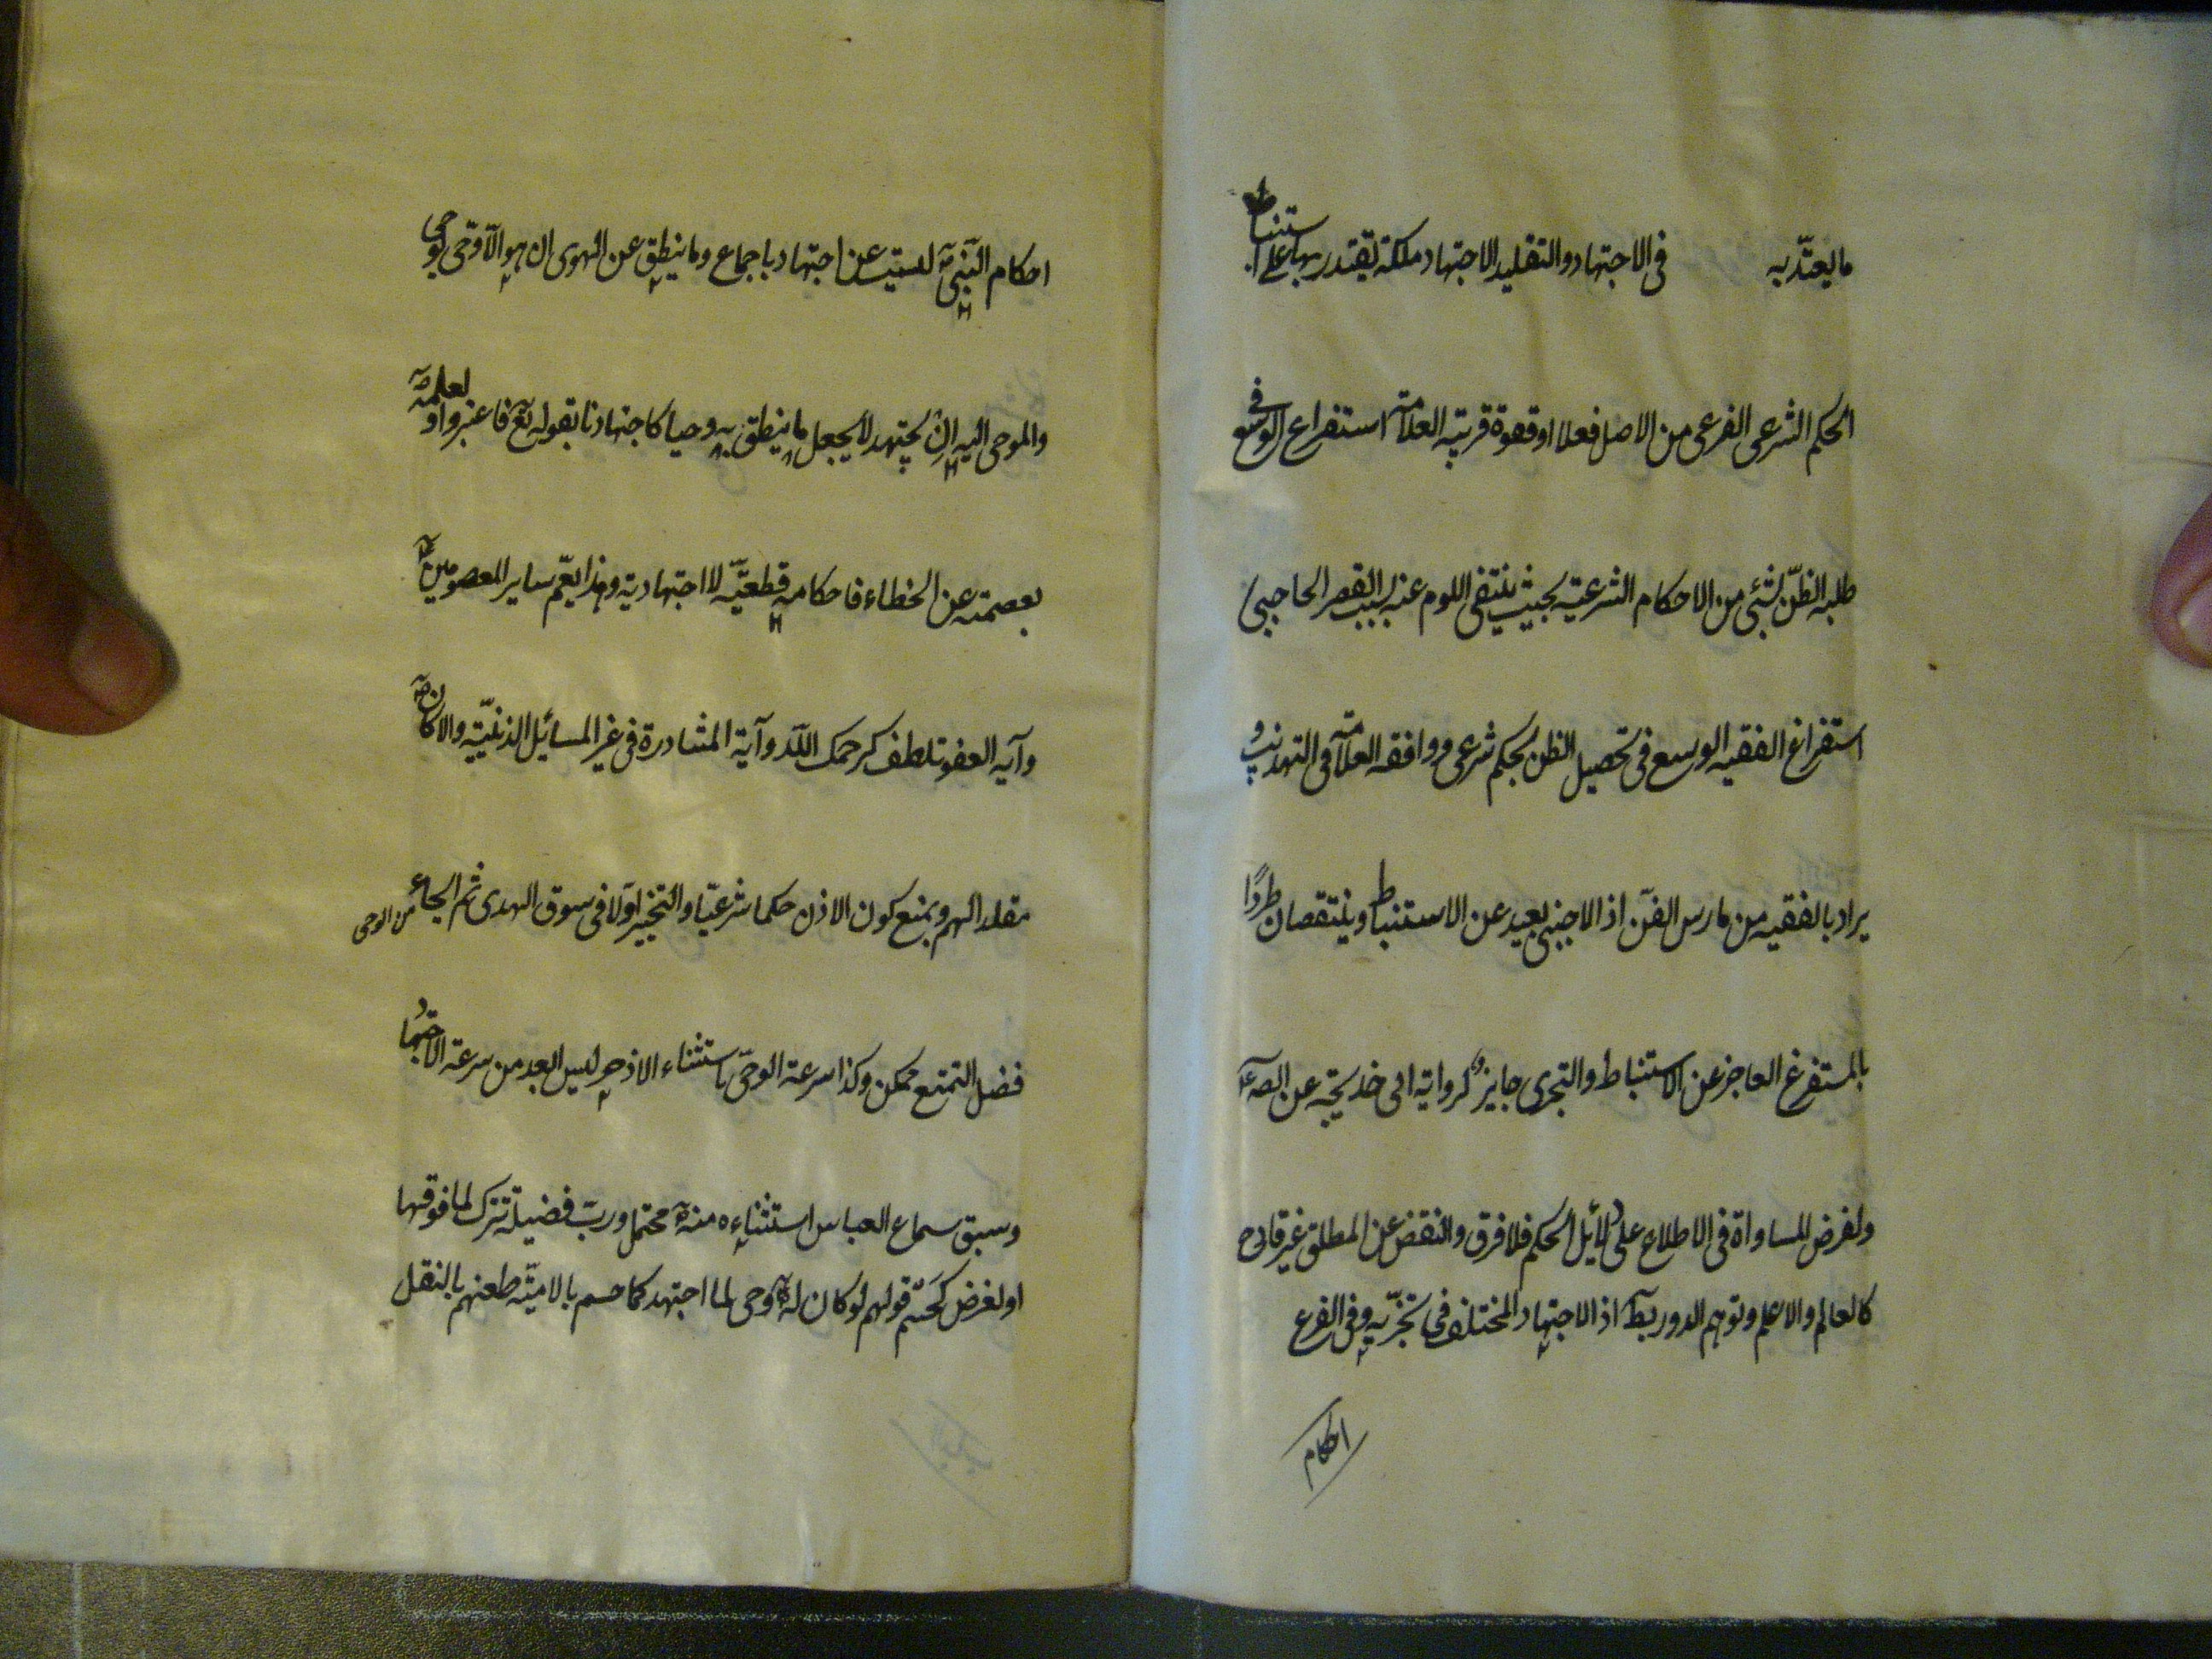 ما يعتدّ به في الاجتهاد والتقليد الاجتهاد ملكة يقتدر بها على استنباط
الحكم الشرعى الفرعى من الاصل فعلا او قوة قريبة العلامة استفراغ الوسع فى
طلبه الظنّ لشئى من الاحكام الشرعية بحيث ينتفى اللوم عنه بسبب التقصير الحاجبى
استفراغ الفقيه الوسع فى تحصيل الظن بحكم شرعى ووافقه العلامة فى التهذيب و
يراد بالفقيه من مارس الفنّ اذ الاجنبى بعيد عن الاستنباط وينتقصان طردًا
بالمستفرغ العاجز عن الاستنباط والتجزى جايز لرواية ابى خديجة عن الصّ ع
ولفرض المساواة فى الاطلاع على دلائل الحكم فلا فرق والنقض عن المطلق غير قادح
كالعالم والاعلم وتوهم الدور بط اذ الاجتهاد المختلف فى تجزيه وفى الفرع
احكام
احكام النبىّ ص ليست عن اجتهاد باجماع وما ينطق عن الهوى ان هو الّا وحى يوحى
والموحى اليه ان يجتهد لا يجعل ما ينطق به وحيا كاجتهادنا بقوله تع فاعتبروا و لعلمه
بعصمته عن الخطاء فاحكامه قطعيّة لا اجتهادية وهذا يعمّ ساير المعصومين ع
وآية العفو تلطف كرحمك اللّه وآية المشاورة فى غير المسائل الدينيّة والا كان ص
مقلدا لهم ويمنع كون الاذن حكما شرعيّا والتخيير اوّلا فى سوق الهدى ثم ايجا من الوحى
فضل التمتع ممكن وكذا سرعة الوحى باستثناء الاذخر ليس ابعد من سرعة الاجتهاد
وسبق سماع العباس استثناءه منه ص محتمل وربّ فضيلة تترك لما فوقها
او لغرض كحسم قولهم لو كان له ص وحى لما اجتهد كما حسم بالاميّة طعنهم بالنقل